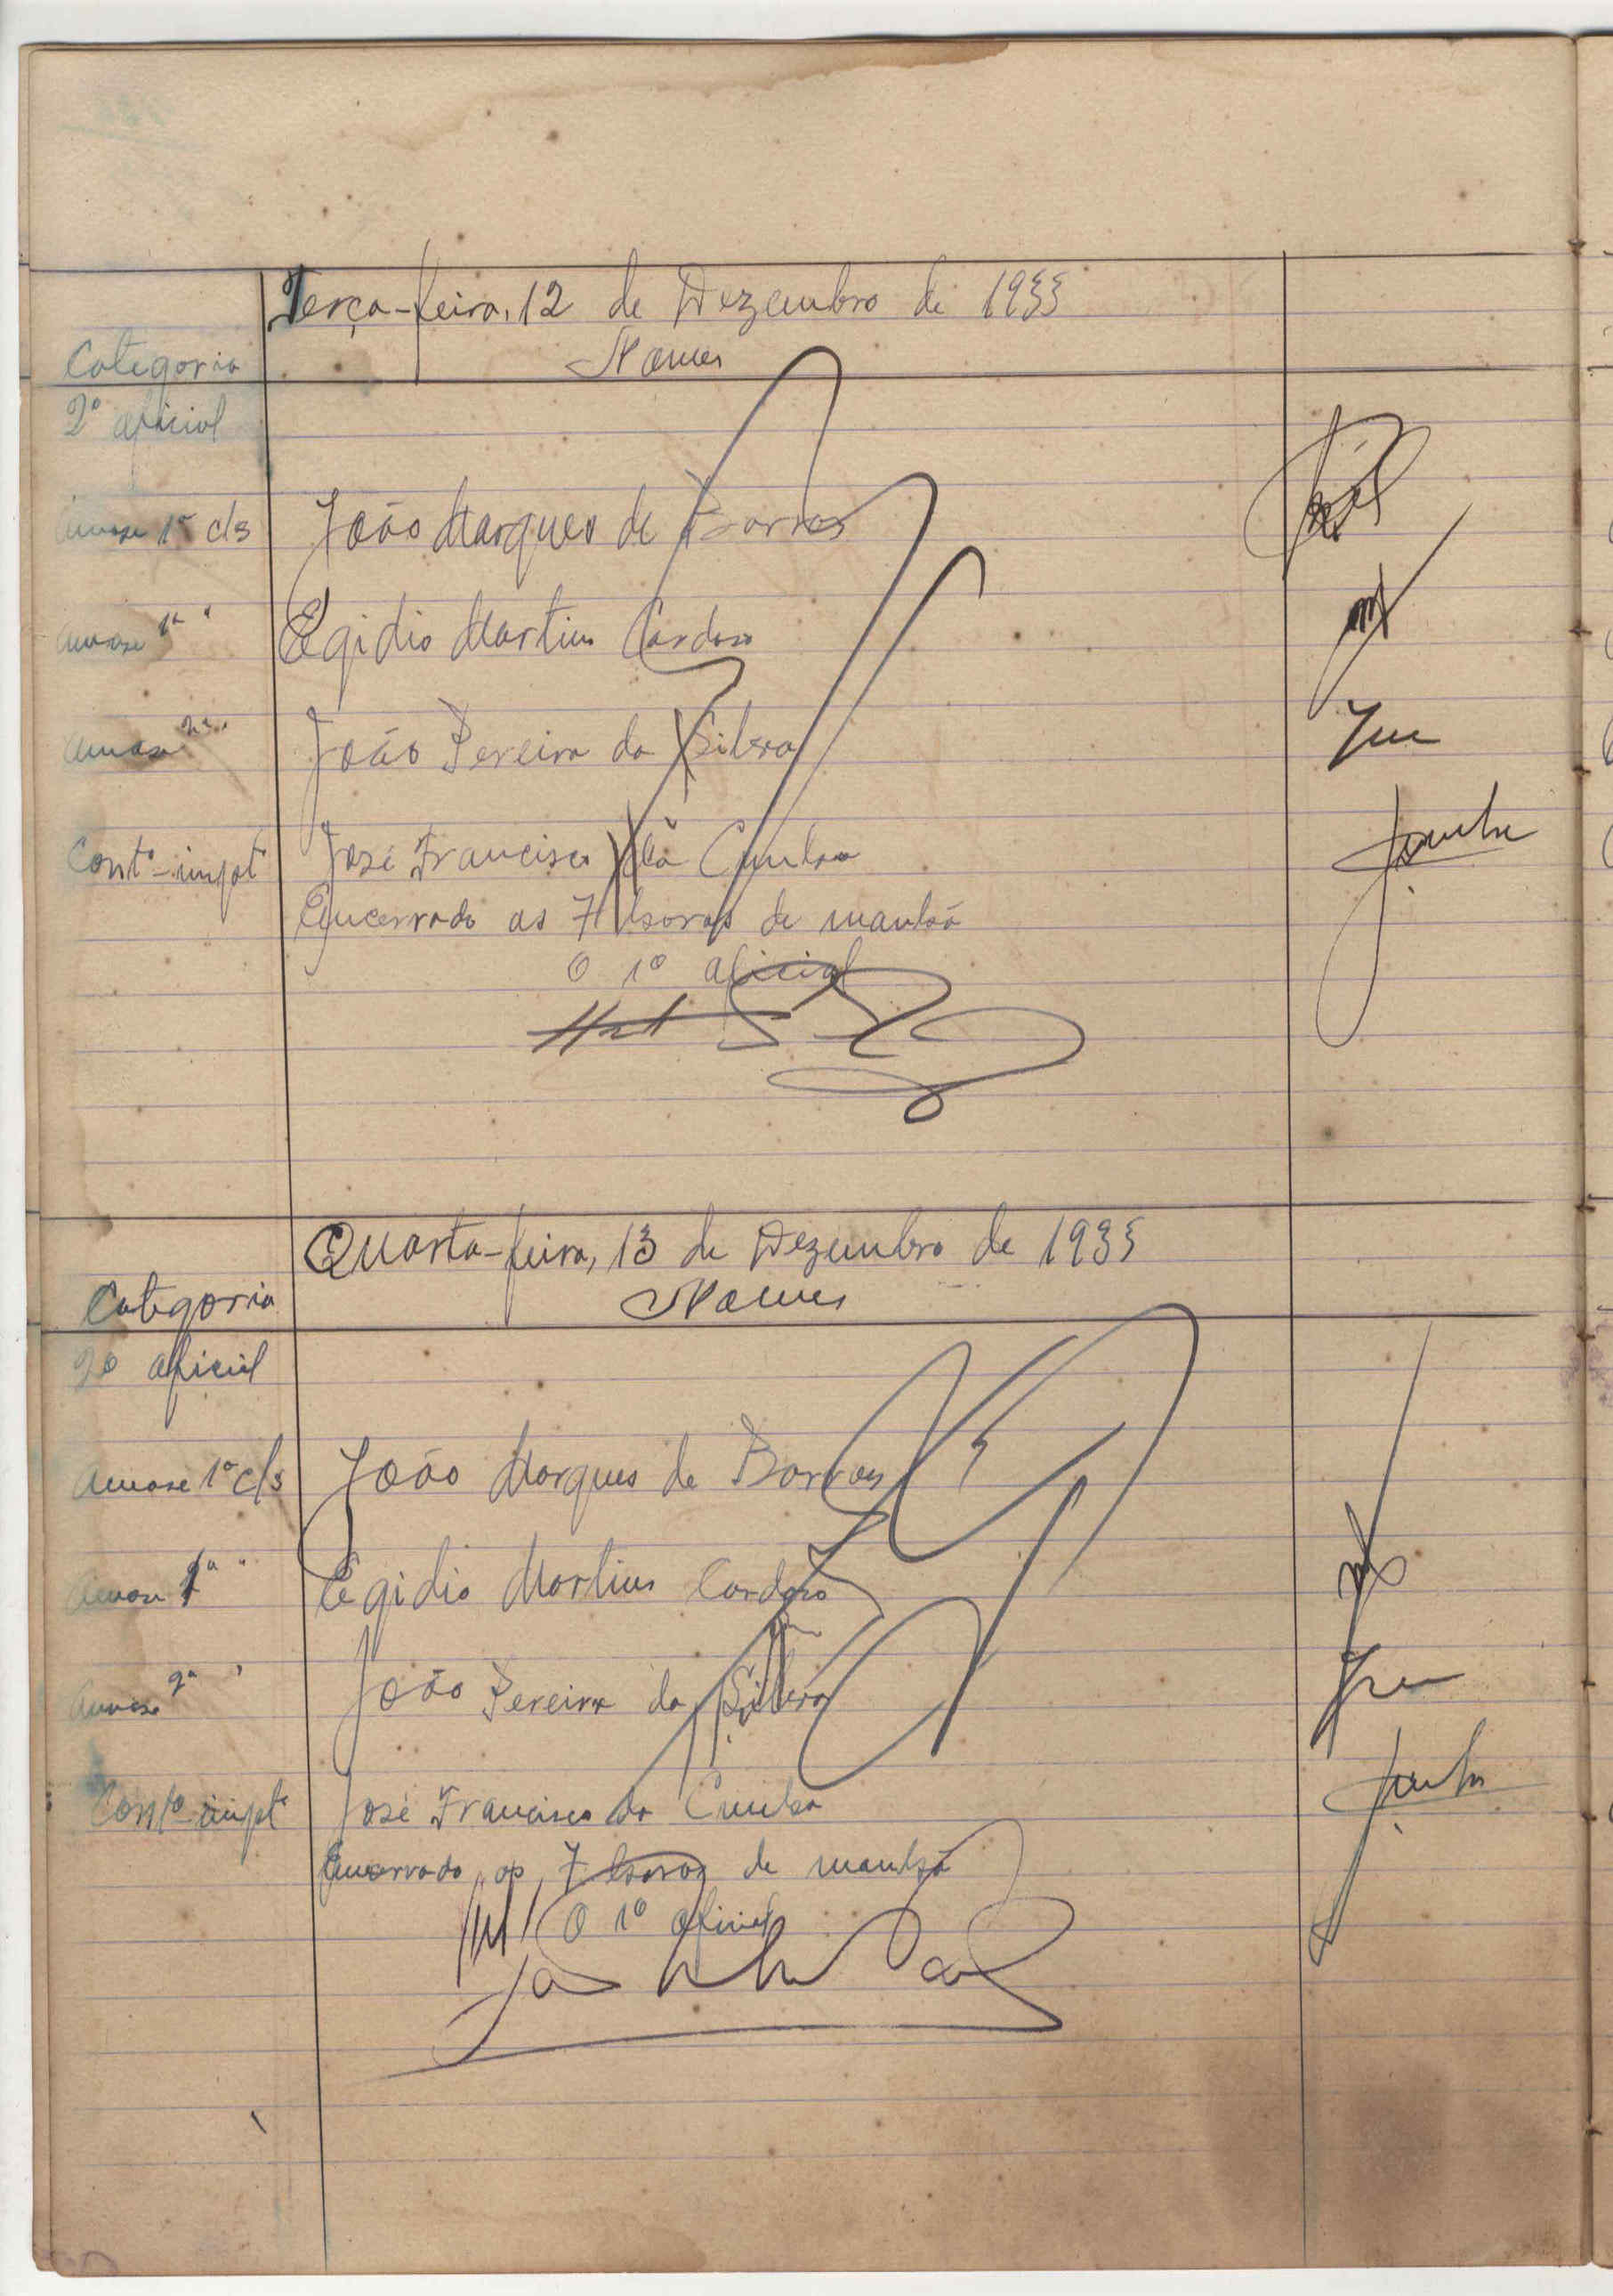 Terça-feira, 12 de Dezembro de 1933
Categoria Nomes
2º oficial
1ª cls João Marques de Barros
1ª " Egidio Martins Cardoso
2ª " João Pereira da Silva
Contº impt José Francisco da Cunha
Encerrado as 7 horas de manhã
O 1º oficial
Quarta-feira, 13 de Dezembro de 1933
Categoria Nomes
2º oficial
Amanse 1ª cls João Marques de Barros
Amanse 1ª " Egidio Martins Cardoso
Amanse 2ª " João Pereira da Silva
Contº impt José Francisco da Cunha
Encerrado as 7 horas de manhã
O 1º oficial